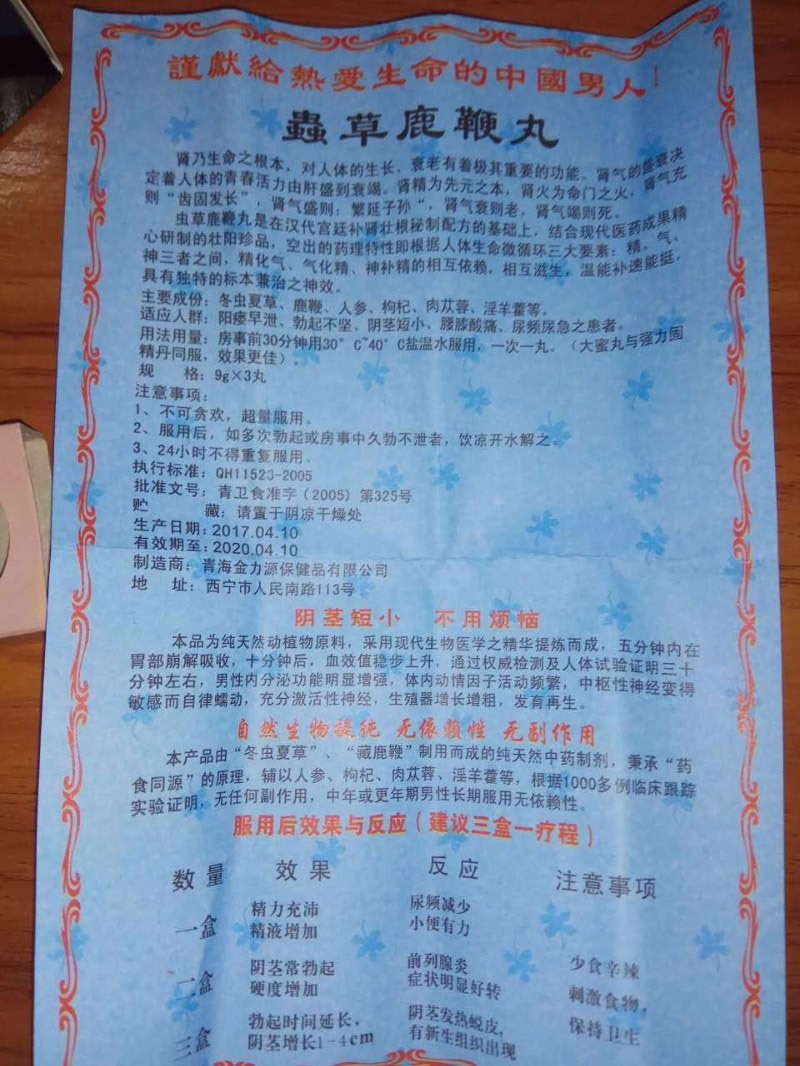 謹獻給熱愛生命的中國男人！
蟲草鹿鞭丸
肾乃生命之根本，对人体的生长、衰老有着极其重要的功能。肾气的盛衰决
定着人体的青春活力由肝盛到衰竭。肾精为先元之本，肾火为命门之火，肾气充
则“齿固发长”，肾气盛则：繁延子孙“，肾气衰则老，肾气竭则死。
虫草鹿鞭丸是在汉代宫廷补肾壮根秘制配方的基础上，结合现代医药成果精
心研制的壮阳珍品，空出的药理特性即根据人体生命微循环三大要素：精、气、
神三者之间，精化气、气化精、神补精的相互依赖，相互滋生，温能补速能挺，
具有独特的标本兼治之神效。
主要成份：冬虫夏草、鹿鞭、人参、枸杞、肉苁蓉、淫羊藿等。
适应人群：阳痿早泄、勃起不坚、阴茎短小、腰膝酸痛、尿频尿急之患者。
用法用量：房事前30分钟用30°C~40°C盐温水服用，一次一丸。（大蜜丸与强力固
精丹同服，效果更佳）。
规 格：9g×3丸
注意事项：
1、不可贪欢，超量服用。
2、服用后，如多次勃起或房事中久勃不泄者，饮凉开水解之。
3、24小时不得重复服用。
执行标准：QH11523-2005
批准文号：青卫食准字（2005）第325号
贮 藏：请置于阴凉干燥处
生产日期：2017.04.10
有效期至：2020.04.10
制造商：青海金力源保健品有限公司
地 址：西宁市人民南路113号
阴茎短小 不用烦恼
本品为纯天然动植物原料，采用现代生物医学之精华提炼而成，五分钟内在
胃部崩解吸收，十分钟后，血效值稳步上升，通过权威检测及人体试验证明三十
分钟左右，男性内分泌功能明显增强，体内动情因子活动频繁，中枢性神经变得
敏感而自律蠕动，充分激活性神经，生殖器增长增粗，发育再生。
自然生物提纯 无依赖性 无副作用
本产品由“冬虫夏草”、“藏鹿鞭”制用而成的纯天然中药制剂，秉承“药
食同源”的原理，辅以人参、枸杞、肉苁蓉、淫羊藿等，根据1000多例临床跟踪
实验证明，无任何副作用，中年或更年期男性长期服用无依赖性。
服用后效果与反应（建议三盒一疗程）
数量 效果 反应 注意事项
一盒 精力充沛 尿频减少
精液增加 小便有力
二盒 阴茎常勃起 前列腺炎 少食辛辣
硬度增加 症状明显好转 刺激食物，
三盒 勃起时间延长， 阴茎发热蜕皮， 保持卫生
阴茎增长1-4cm 有新生组织出现